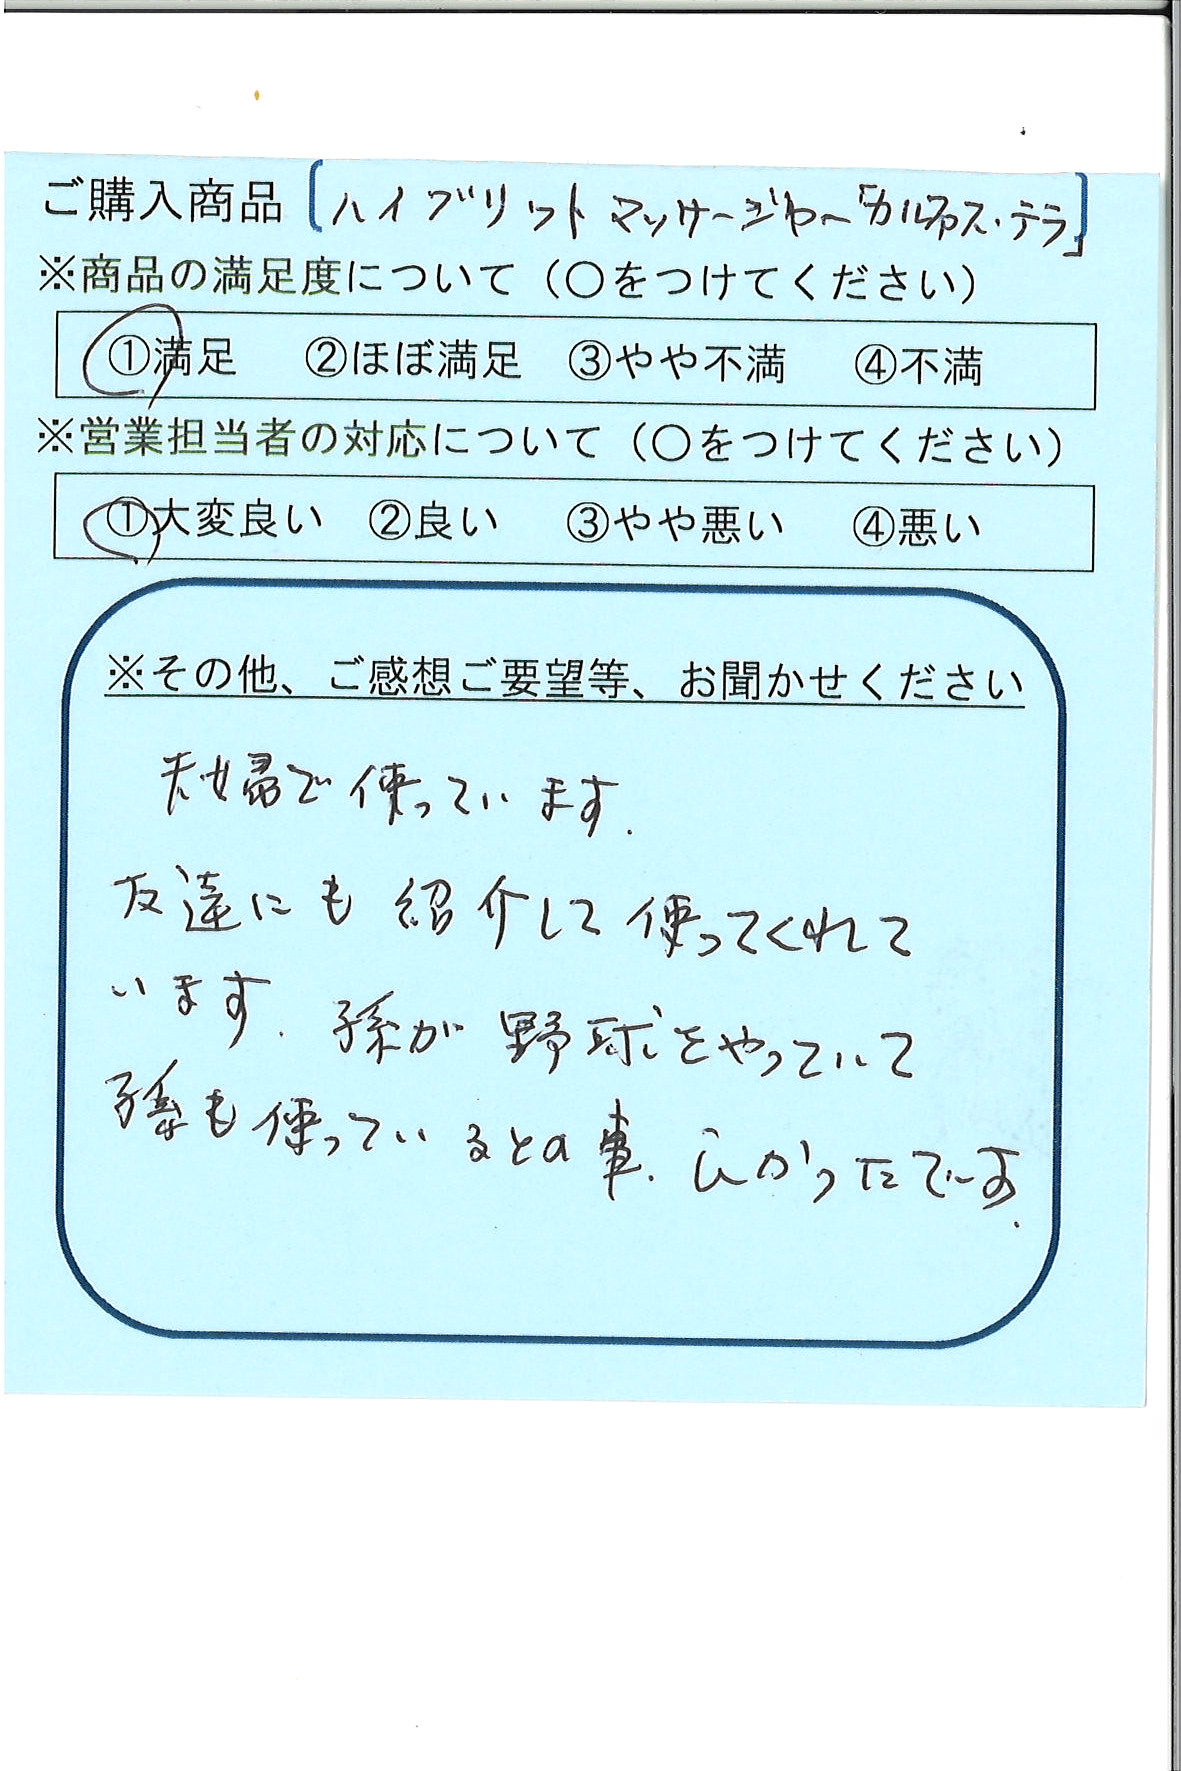 ご購入商品[ハイブリットマッサージャー「カルファス・テラ」]
※商品の満足度について（〇をつけてください）
①満足 ②ほぼ満足 ③やや不満 ④不満
※営業担当者の対応について（〇をつけてください）
①大変良い ②良い ③やや悪い ④悪い
※その他、ご感想ご要望等、お聞かせください
夫婦で使っています.
友達にも紹介して使ってくれて
います. 孫が野球をやっていて
孫も使っているとの事. よかったです.